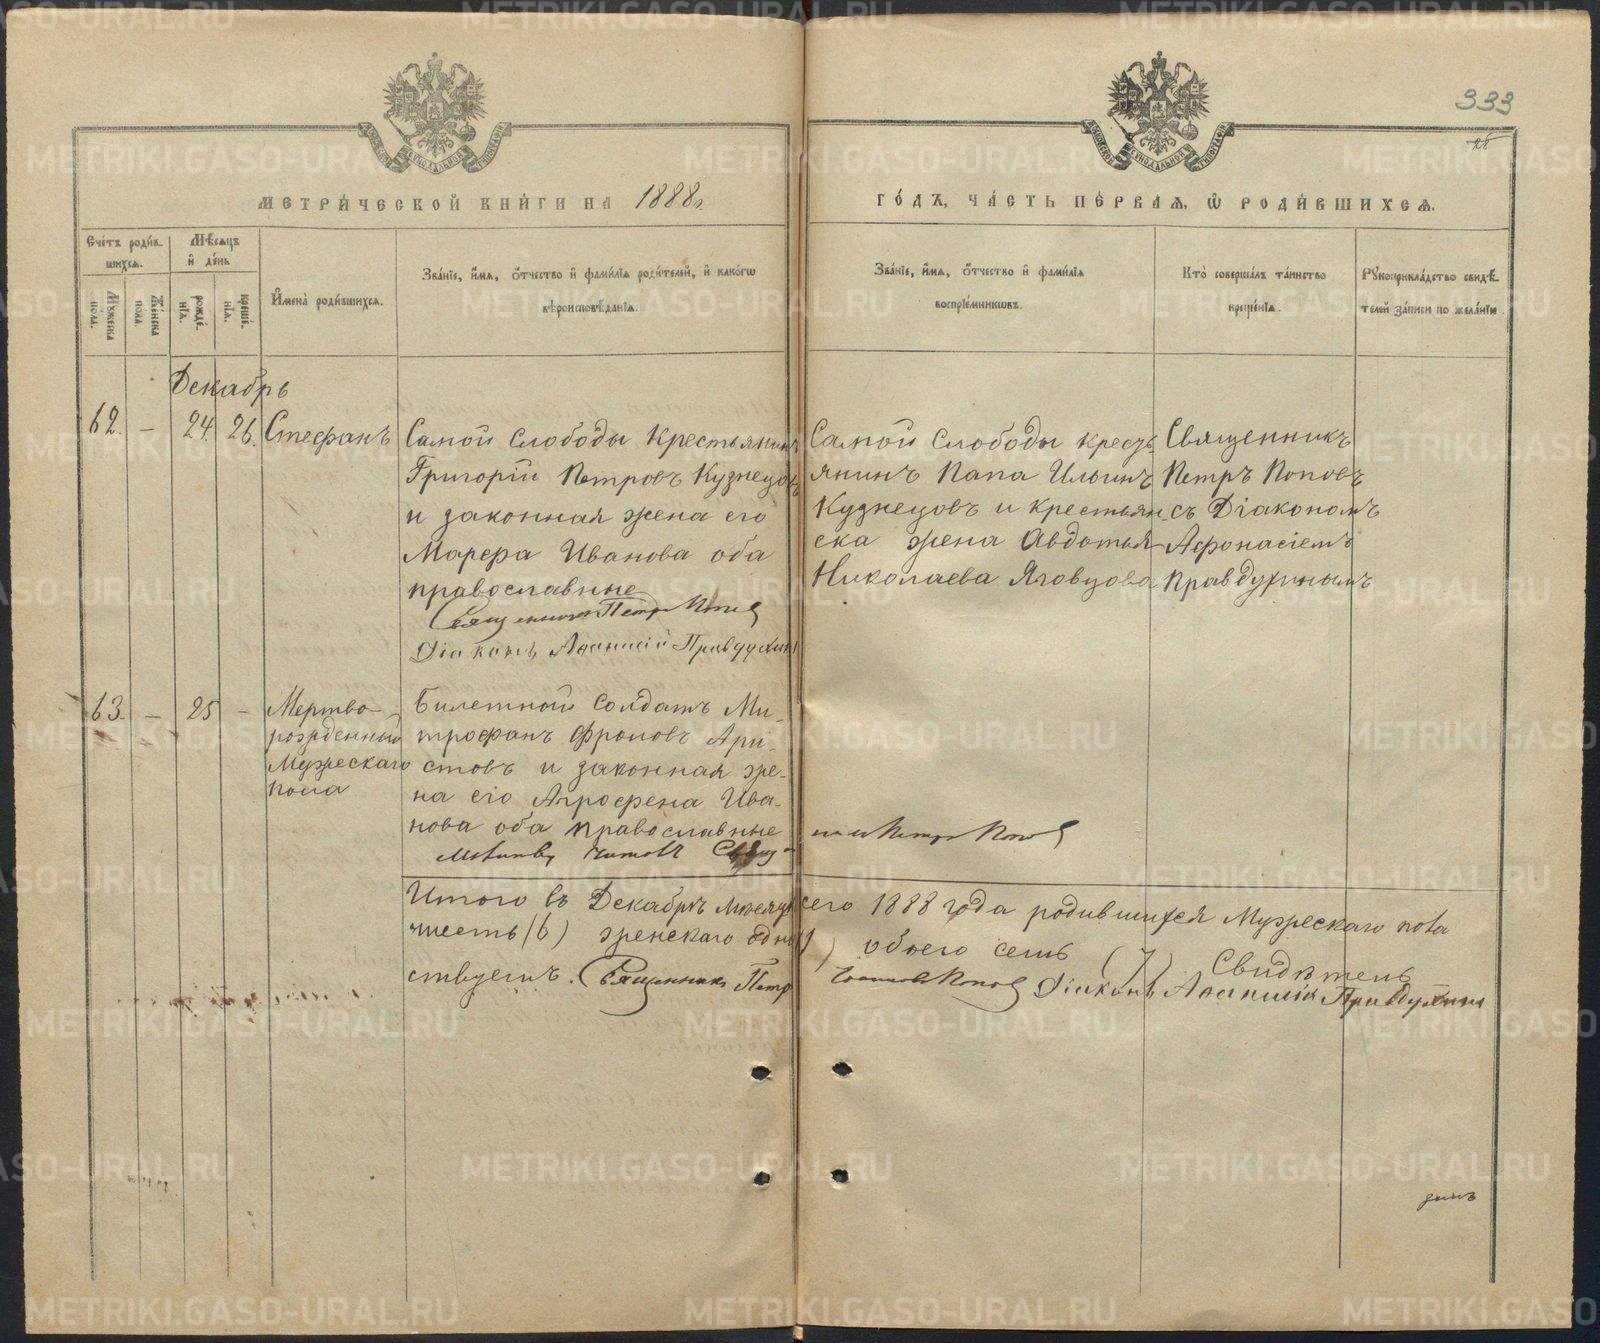 333
МЕТРИ́ЧЕСКОЙ КНИ́ГИ НА 1888г.
ГО́ДЪ, ЧА́СТЬ ПЕ́РВАЯ, Ѡ҆ РОДИ́ВШИХСЯ.
Сче́тъ роди́в-
шихся.
Му́жеска пола.
Же́нска пола.
Мѣ́сяцъ и҆ де́нь
рожде́-
нїя.
креще́-
нїя.
И҆мена̀ роди́вшихся.
Зва́нїе, и҆́мя, ѻ҆́тчество и҆ фами́лїя роди́телей, и҆ како́гѡ
вѣроисповѣ́данїя.
Зва́нїе, и҆́мя, ѻ҆́тчество и҆ фами́лїя
воспрїе́мниковъ.
Кто̀ соверша́лъ та́инство
креще́нїя.
Рꙋкоприкла́дство свидѣ́-
телей за́писи по жела́нїю.
Декабрь
62. — 24. 26. Стефанъ
Самой Слободы Крестьянинъ
Григорій Петровъ Кузнецовъ
и законная жена его
Марфа Иванова оба
православные
Священникъ Петръ Поповъ
Діаконъ Афанасій Правдухинъ
Самой Слободы крестъ-
янинъ Папа Ильинъ
Кузнецовъ и крестьян-
ска жена Авдотья
Николаева Яговцова
Священникъ
Петръ Поповъ
съ Діакономъ
Афонасіемъ
Правдухинымъ
63. — 25 —
Мертво-
рожденный
Мужескаго
пола
Билетной Солдатъ Ми-
трофанъ Фроловъ Ари-
стовъ и законная же-
на его Агрофена Ива-
нова оба православные
Петръ Поповъ
Итого въ Декабрѣ месяцѣ сего 1888 года родившихся Мужескаго пола
шесть (6) женскаго одна (1) обоего семь (7) Свидѣтель
ствуемъ. Священникъ Петръ Поповъ Діаконъ Афанасій Правдухинъ
METRIKI.GASO-URAL.RU